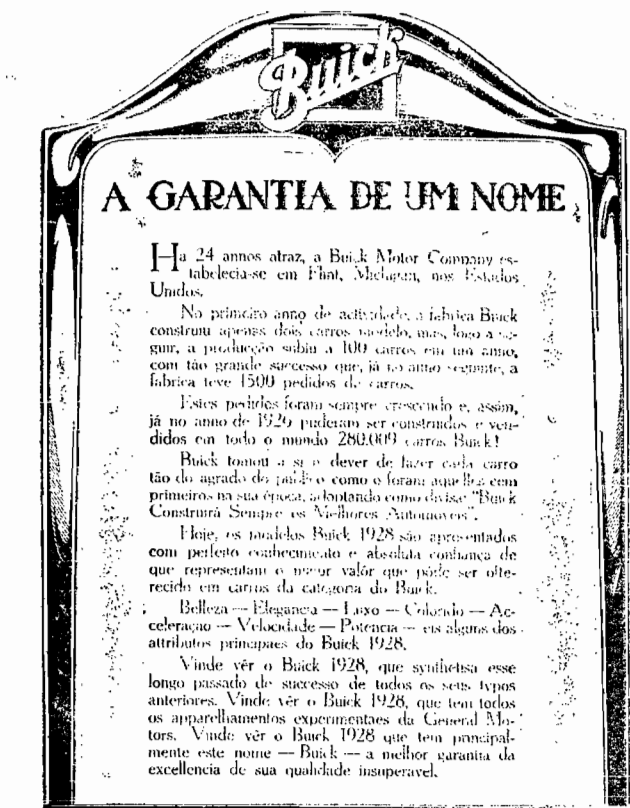 Buick
A GARANTIA DE UM NOME
Ha 24 annos atraz, a Buick Motor Company es-
tabelecia-se em Flint, Michigan, nos Estados
Unidos.
No primeiro anno de actividade, a fabrica Buick
construiu apenas dois carros modelo, mas, logo a se-
guir, a producção subiu a 100 carros em um anno,
com tão grande successo que, já no anno seguinte, a
fabrica teve 1500 pedidos de carros.
Estes pedidos foram sempre crescendo e, assim,
já no anno de 1926 puderam ser construidos e ven-
didos em todo o mundo 280.009 carros Buick!
Buick tomou a si o dever de fazer cada carro
tão do agrado do publico como o foram aquelles cem
primeiros na sua época, adoptando como divisa "Buick
Construirá Sempre os Melhores Automoveis".
Hoje, os modelos Buick 1928 são apresentados
com perfeito conhecimento e absoluta confiança de
que representam o maior valôr que póde ser offe-
recido em carros da categoria do Buick.
Belleza — Elegancia — Luxo — Colorido — Ac-
celeração — Velocidade — Potencia — eis alguns dos
attributos principaes do Buick 1928.
Vinde vêr o Buick 1928, que synthetisa esse
longo passado de successo de todos os seus typos
anteriores. Vinde vêr o Buick 1928, que tem todos
os apparelhamentos experimentaes da General Mo-
tors. Vinde vêr o Buick 1928 que tem principal-
mente este nome — Buick — a melhor garantia da
excellencia de sua qualidade insuperavel.